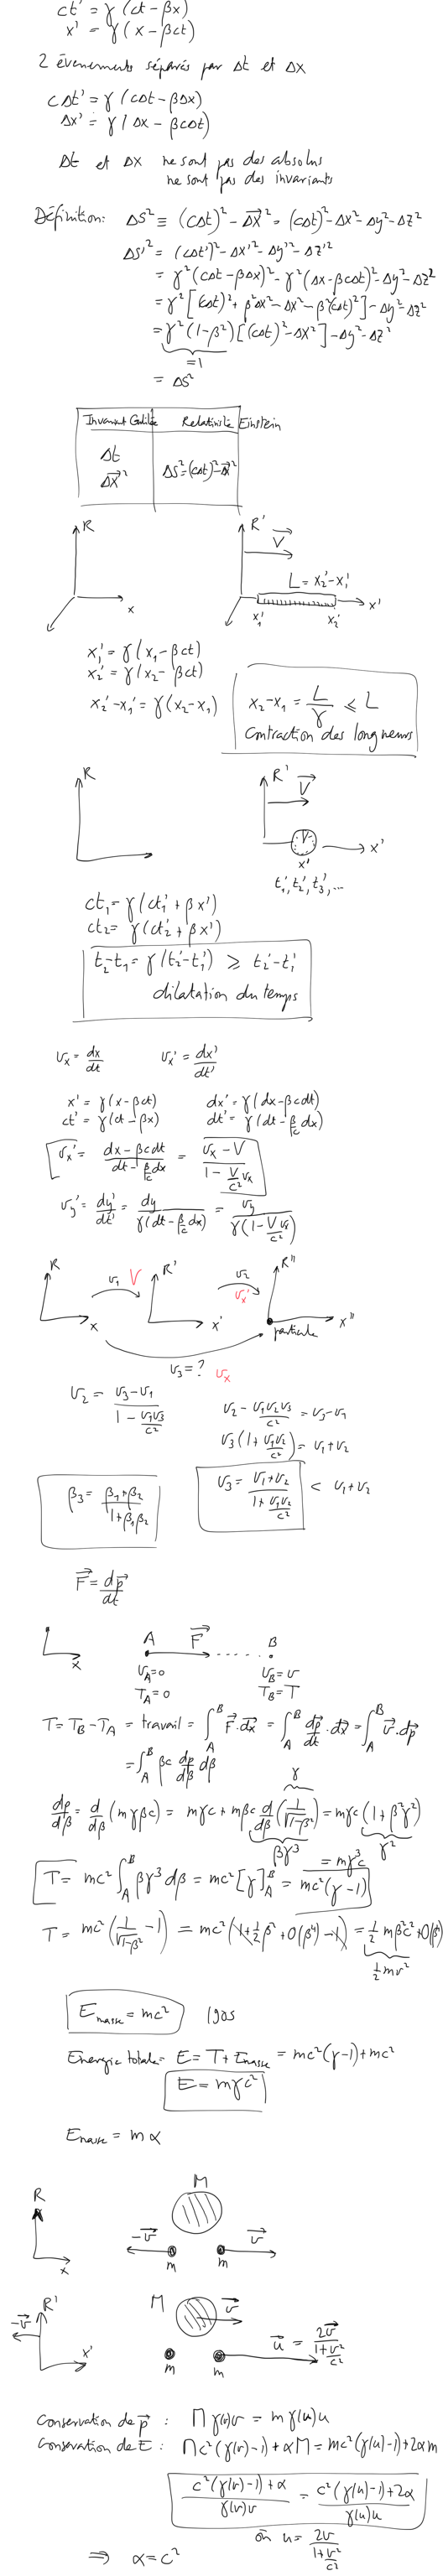 ct' = γ (ct - βx)
x' = γ ( x - βct)
2 évenements séparés par Δt et Δx
cΔt' = γ (cΔt - βΔx)
Δx' = γ ( Δx - βcΔt)
Δt et Δx ne sont pas des absolus
ne sont pas des invariants
Définition: Δs² ≡ (cΔt)² - ΔX⃗² = (cΔt)² - Δx² - Δy² - Δz²
Δs'² = (cΔt')² - Δx'² - Δy'² - Δz'²
= γ²(cΔt - βΔx)² - γ²(Δx - βcΔt)² - Δy² - Δz²
= γ²[(cΔt)² + β²Δx² - Δx² - β²(cΔt)²] - Δy² - Δz²
= γ²(1-β²)[(cΔt)² - Δx²] - Δy² - Δz²
=1
= Δs²
Invariant Galilée Relativisté Einstein
Δt
ΔX⃗²
Δs² = (cΔt)² - ΔX⃗²
R R' V⃗
L = x₂' - x₁'
x x₁' x₂' x'
x₁' = γ(x₁ - βct)
x₂' = γ(x₂ - βct)
x₂' - x₁' = γ(x₂ - x₁)
x₂ - x₁ = L/γ ⩽ L
Contraction des longueurs
R R' V⃗
x' x'
t₁', t₂', t₃', ...
ct₁ = γ(ct₁' + βx')
ct₂ = γ(ct₂' + βx')
t₂ - t₁ = γ(t₂' - t₁') ⩾ t₂' - t₁'
dilatation du temps
v_x = dx/dt v_x' = dx'/dt'
x' = γ(x - βct) dx' = γ(dx - βcdt)
ct' = γ(ct - βx) dt' = γ(dt - β/c dx)
v_x' = (dx - βcdt)/(dt - β/c dx) = (v_x - V)/(1 - V/c² v_x)
v_y' = dy'/dt' = dy/(γ(dt - β/c dx)) = v_y/(γ(1 - V v_x/c²))
R v₁ V R' v₂ v_x' R''
x x' particule x''
v₃ = ? v_x
v₂ = (v₃ - v₁)/(1 - v₁v₃/c²)
v₂ - v₁v₂v₃/c² = v₃ - v₁
v₃(1 + v₁v₂/c²) = v₁ + v₂
β₃ = (β₁ + β₂)/(1 + β₁β₂)
v₃ = (v₁ + v₂)/(1 + v₁v₂/c²) < v₁ + v₂
F⃗ = dp⃗/dt
x A F⃗ B
v_A = 0 v_B = v
T_A = 0 T_B = T
T = T_B - T_A = travail = ∫_A^B F⃗.dx⃗ = ∫_A^B dp⃗/dt . dx⃗ = ∫_A^B v⃗.dp⃗
= ∫_A^B βc dp/dβ dβ
γ
dp/dβ = d/dβ (mγβc) = mγc + mβc d/dβ (1/√(1-β²)) = mγc (1 + β²γ²)
βγ³ γ²
= mγ³c
T = mc² ∫_A^B βγ³ dβ = mc² [γ]_A^B = mc²(γ - 1)
T = mc² (1/√(1-β²) - 1) = mc² (1 + ½β² + O(β⁴) - 1) = ½ mβ²c² + O(β⁴)
½ mv²
E_masse = mc² 1905
Energie totale = E = T + E_masse = mc²(γ-1) + mc²
E = mγc²
E_masse = m α
M
R -v⃗ v⃗
x m m
-v⃗ R' M v⃗
x' m m u⃗ = 2v⃗/(1 + v²/c²)
Conservation de p⃗ : M γ(v)v = m γ(u)u
Conservation de E : Mc²(γ(v)-1) + αM = mc²(γ(u)-1) + 2αm
(c²(γ(v)-1) + α)/(γ(v)v) = (c²(γ(u)-1) + 2α)/(γ(u)u)
où u = 2v/(1 + v²/c²)
⇒ α = c²